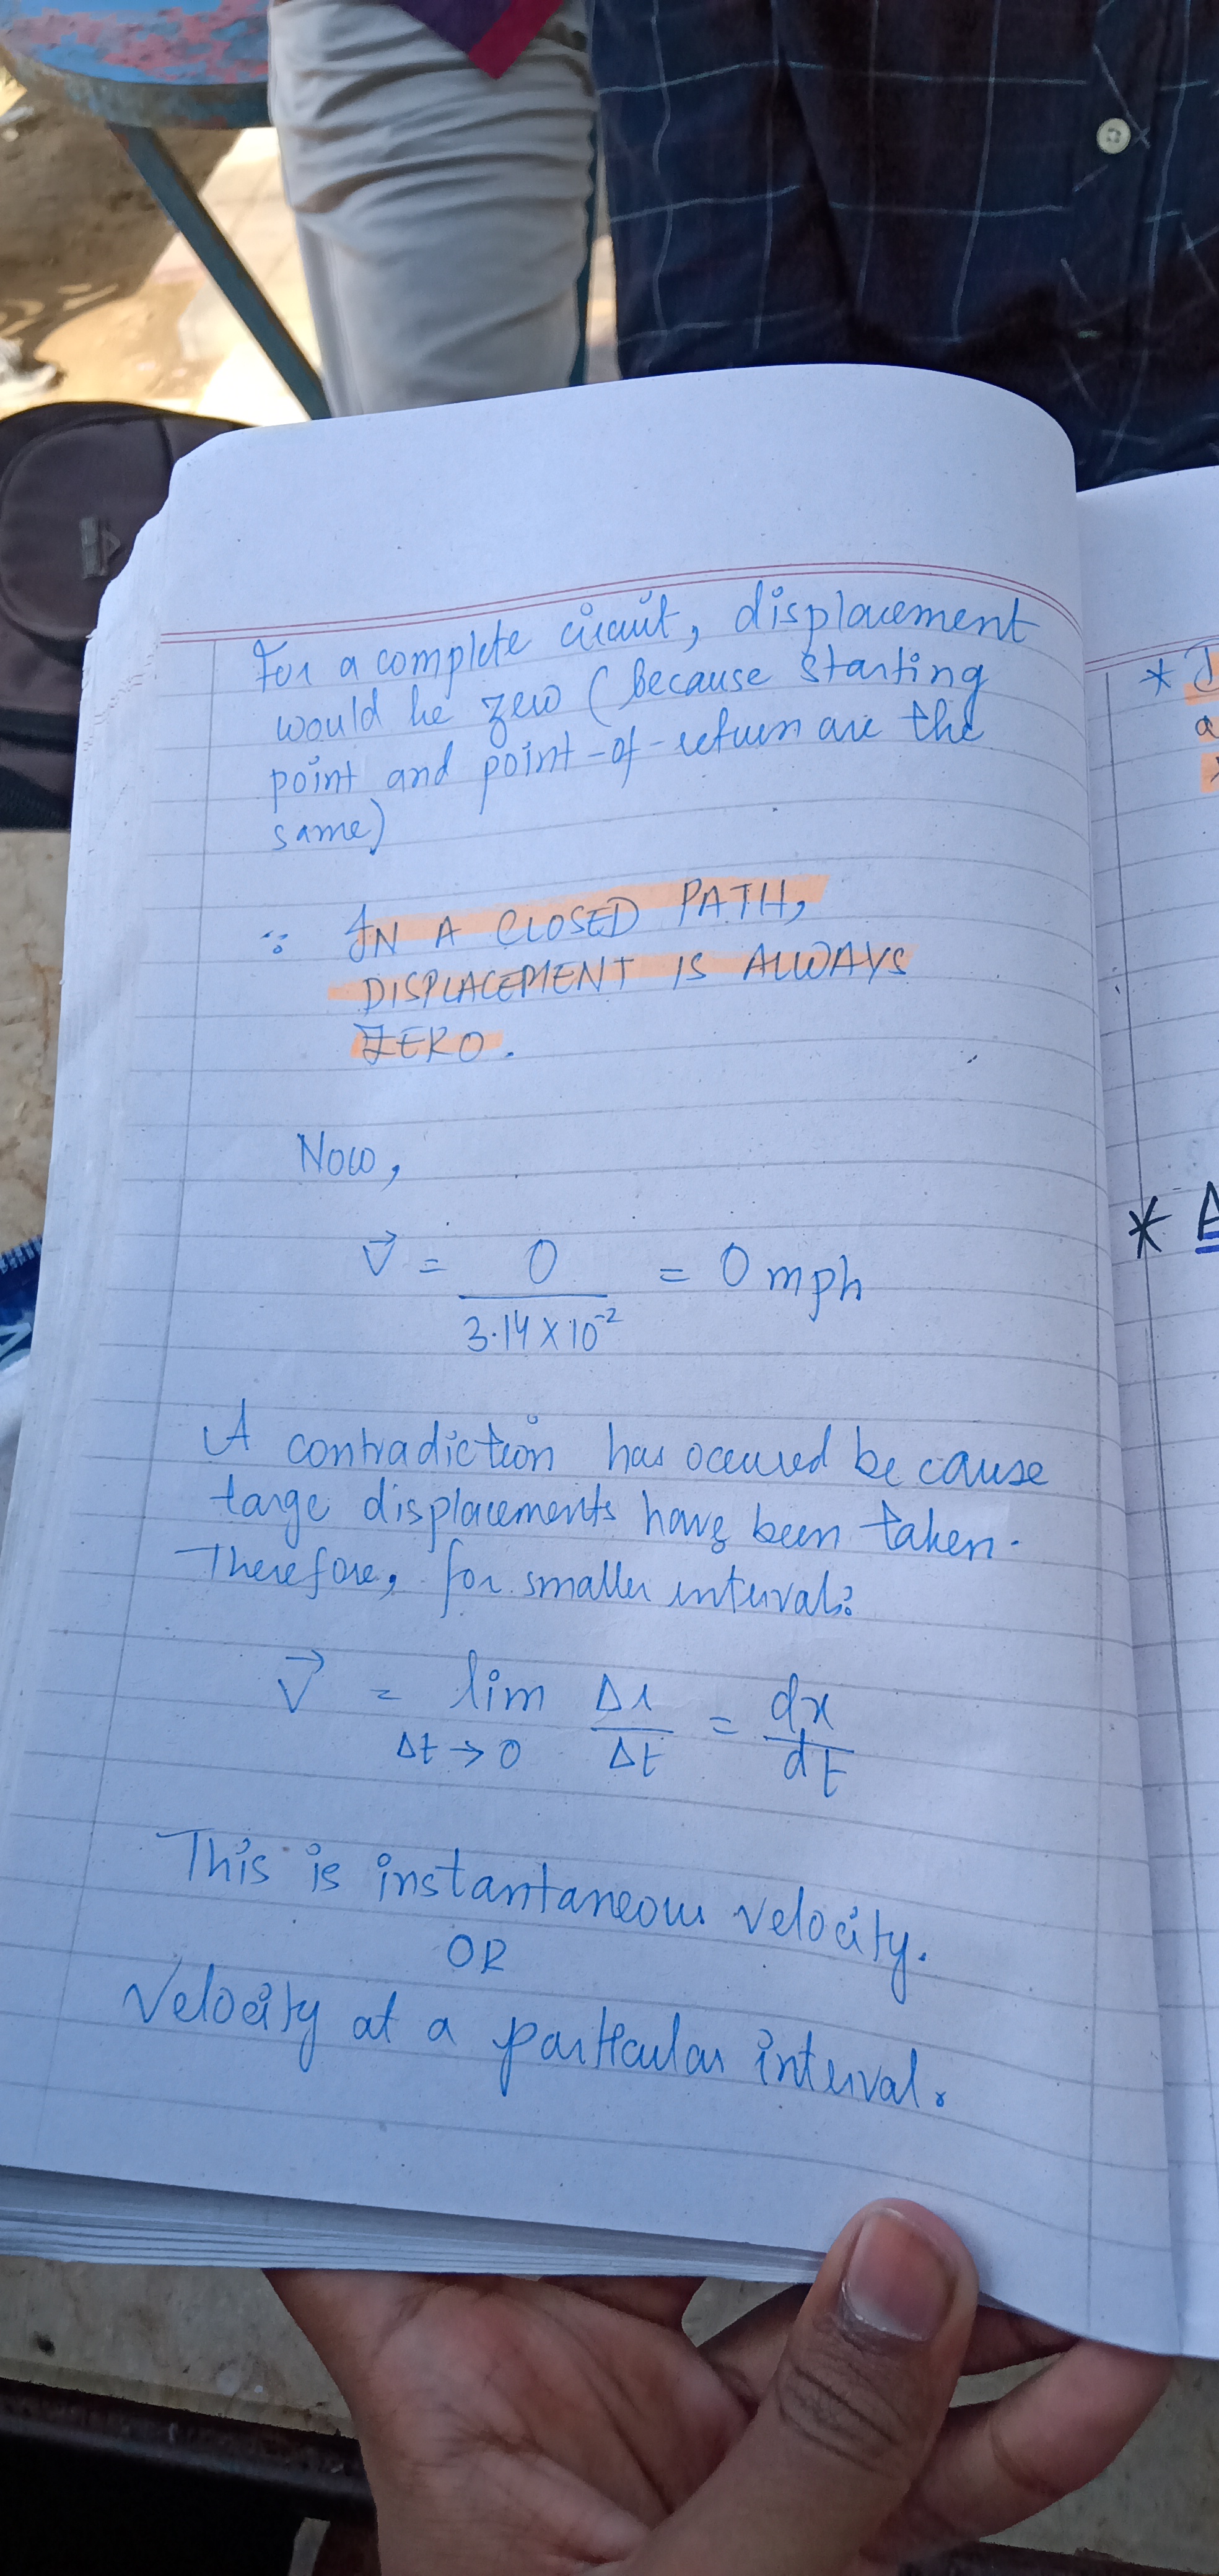 For a complete circuit, displacement
would be zero (because starting
point and point-of-return are the
same)
∵ IN A CLOSED PATH,
DISPLACEMENT IS ALWAYS
ZERO.
Now,
v⃗ = 0 / 3.14 × 10⁻² = 0 mph
A contradiction has occured because
large displacements have been taken.
Therefore, for smaller interval:
v⃗ = lim Δt→0 Δx/Δt = dx/dt
This is instantaneous velocity.
OR
Velocity at a particular interval.
*
*